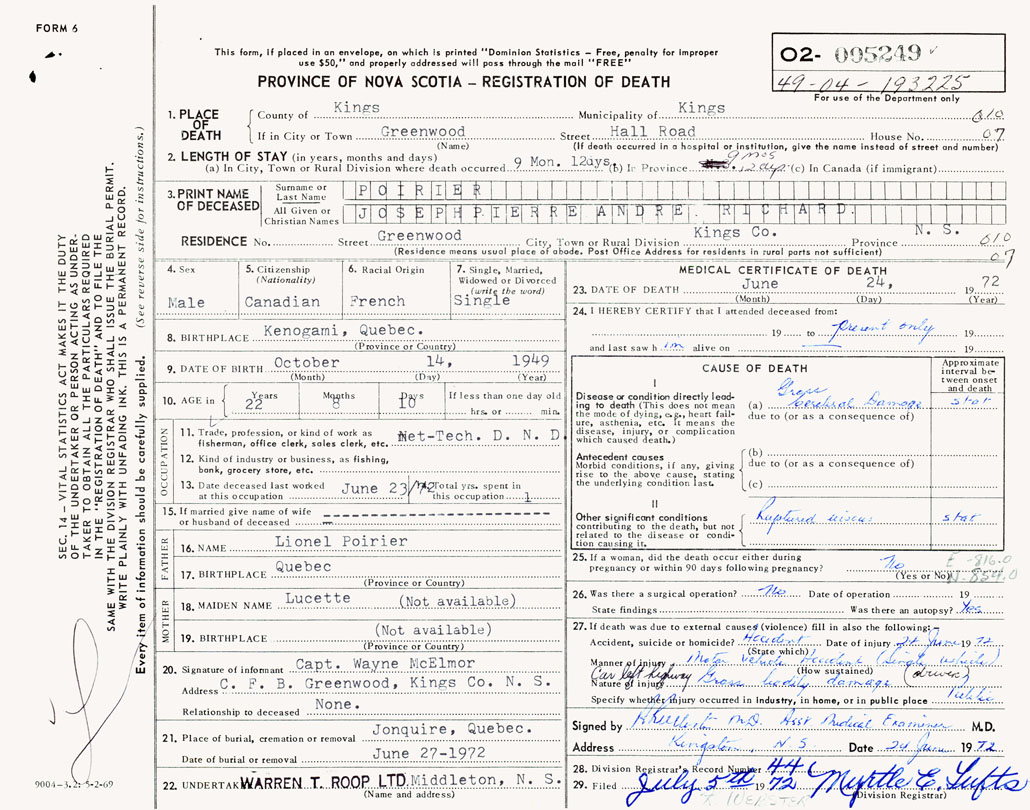 FORM 6
This form, if placed in an envelope, on which is printed "Dominion Statistics – Free, penalty for improper
use $50," and properly addressed will pass through the mail "FREE"
PROVINCE OF NOVA SCOTIA – REGISTRATION OF DEATH
02- 005249
49-04-193225
For use of the Department only
1. PLACE OF DEATH
County of Kings Municipality of Kings 010
If in City or Town Greenwood Street Hall Road House No. 07
(Name) (If death occurred in a hospital or institution, give the name instead of street and number)
2. LENGTH OF STAY (in years, months and days)
(a) In City, Town or Rural Division where death occurred 9 Mon. 12days (b) In Province 9 mos 12 dys (c) In Canada (if immigrant)
3. PRINT NAME OF DECEASED
Surname or Last Name POIRIER
All Given or Christian Names JOSEPH PIERRE ANDRE. RICHARD.
RESIDENCE No. Street Greenwood City, Town or Rural Division Kings Co. Province N. S. 010
(Residence means usual place of abode. Post Office Address for residents in rural parts not sufficient) 07
4. Sex
Male
5. Citizenship
(Nationality)
Canadian
6. Racial Origin
French
7. Single, Married,
Widowed or Divorced
(write the word)
Single
8. BIRTHPLACE Kenogami, Quebec.
(Province or Country)
9. DATE OF BIRTH October 14, 1949
(Month) (Day) (Year)
10. AGE in Years 22 Months 8 Days 10 If less than one day old
hrs. or min.
OCCUPATION
11. Trade, profession, or kind of work as
fisherman, office clerk, sales clerk, etc. Met-Tech. D. N. D.
12. Kind of industry or business, as fishing,
bank, grocery store, etc.
13. Date deceased last worked
at this occupation June 23/72 Total yrs. spent in
this occupation 1
15. If married give name of wife
or husband of deceased
FATHER
16. NAME Lionel Poirier
17. BIRTHPLACE Quebec
(Province or Country)
MOTHER
18. MAIDEN NAME Lucette (Not available)
19. BIRTHPLACE (Not available)
(Province or Country)
20. Signature of informant Capt. Wayne McElmor
Address C. F. B. Greenwood, Kings Co. N. S.
Relationship to deceased None.
21. Place of burial, cremation or removal Jonquire, Quebec.
Date of burial or removal June 27-1972
22. UNDERTAK WARREN T. ROOP LTD, Middleton, N. S.
(Name and address)
MEDICAL CERTIFICATE OF DEATH
23. DATE OF DEATH June 24, 1972
(Month) (Day) (Year)
24. I HEREBY CERTIFY that I attended deceased from:
19 to present only 19
and last saw him alive on 19
CAUSE OF DEATH
Approximate
interval be-
tween onset
and death
I
Disease or condition directly lead-
ing to death (This does not
mean the mode of dying, e.g., heart fail-
ure, asthenia, etc. It means the
disease, injury, or complication
which caused death.)
(a) Gross Cerebral Damage stat
due to (or as a consequence of)
Antecedent causes
Morbid conditions, if any, giving
rise to the above cause, stating
the underlying condition last.
(b)
due to (or as a consequence of)
(c)
II
Other significant conditions
contributing to the death, but not
related to the disease or condi-
tion causing it.
Ruptured viscus stat
25. If a woman, did the death occur either during
pregnancy or within 90 days following pregnancy? No
(Yes or No)
E -816.0
N-854.0
26. Was there a surgical operation? No Date of operation 19
State findings Was there an autopsy? Yes
27. If death was due to external causes (violence) fill in also the following:–
Accident, suicide or homicide? Accident Date of injury 24 June 1972
(State which)
Manner of injury Motor vehicle Accident (single vehicle)
Car left highway (How sustained) (driver)
Nature of injury Gross bodily damage
Specify whether injury occurred in industry, in home, or in public place Public
Signed by M.D. Asst Medical Examiner M.D.
Address Kingston, N S Date 24 June 1972
28. Division Registrar's Record Number 44
29. Filed July 5th 1972 Myrtle E. Tufts
(Division Registrar)
SEC. 14 – VITAL STATISTICS ACT MAKES IT THE DUTY
OF THE UNDERTAKER OR PERSON ACTING AS UNDER-
TAKER TO OBTAIN ALL THE PARTICULARS REQUIRED
IN THE "REGISTRATION OF DEATH" AND TO FILE THE
SAME WITH THE DIVISION REGISTRAR WHO SHALL ISSUE THE BURIAL PERMIT.
WRITE PLAINLY WITH UNFADING INK. THIS IS A PERMANENT RECORD.
Every item of information should be carefully supplied. (See reverse side for instructions.)
9004-3.2: 5-2-69